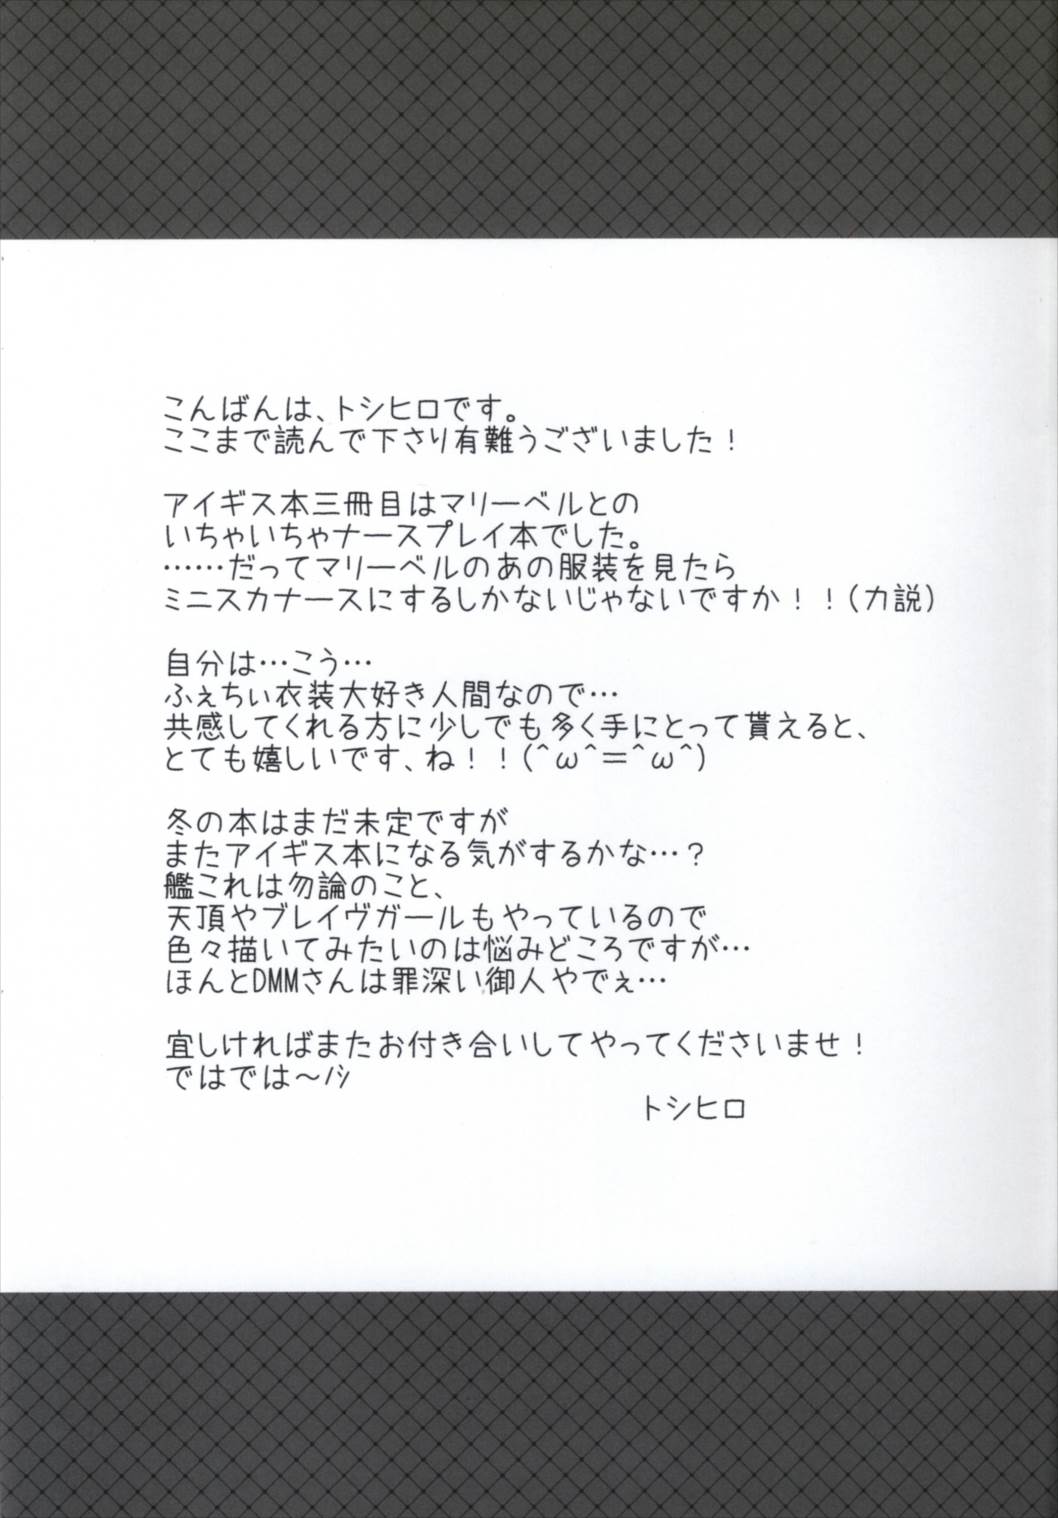 こんばんは、トシヒロです。
ここまで読んで下さり有難うございました！
アイギス本三冊目はマリーベルとの
いちゃいちゃナースプレイ本でした。
……だってマリーベルのあの服装を見たら
ミニスカナースにするしかないじゃないですか！！(力説)
自分は…こう…
ふぇちぃ衣装大好き人間なので…
共感してくれる方に少しでも多く手にとって貰えると、
とても嬉しいです、ね！！(^ω^＝^ω^)
冬の本はまだ未定ですが
またアイギス本になる気がするかな…？
艦これは勿論のこと、
天頂やブレイヴガールもやっているので
色々描いてみたいのは悩みどころですが…
ほんとDMMさんは罪深い御人やでぇ…
宜しければまたお付き合いしてやってくださいませ！
ではでは～ﾉｼ
トシヒロ